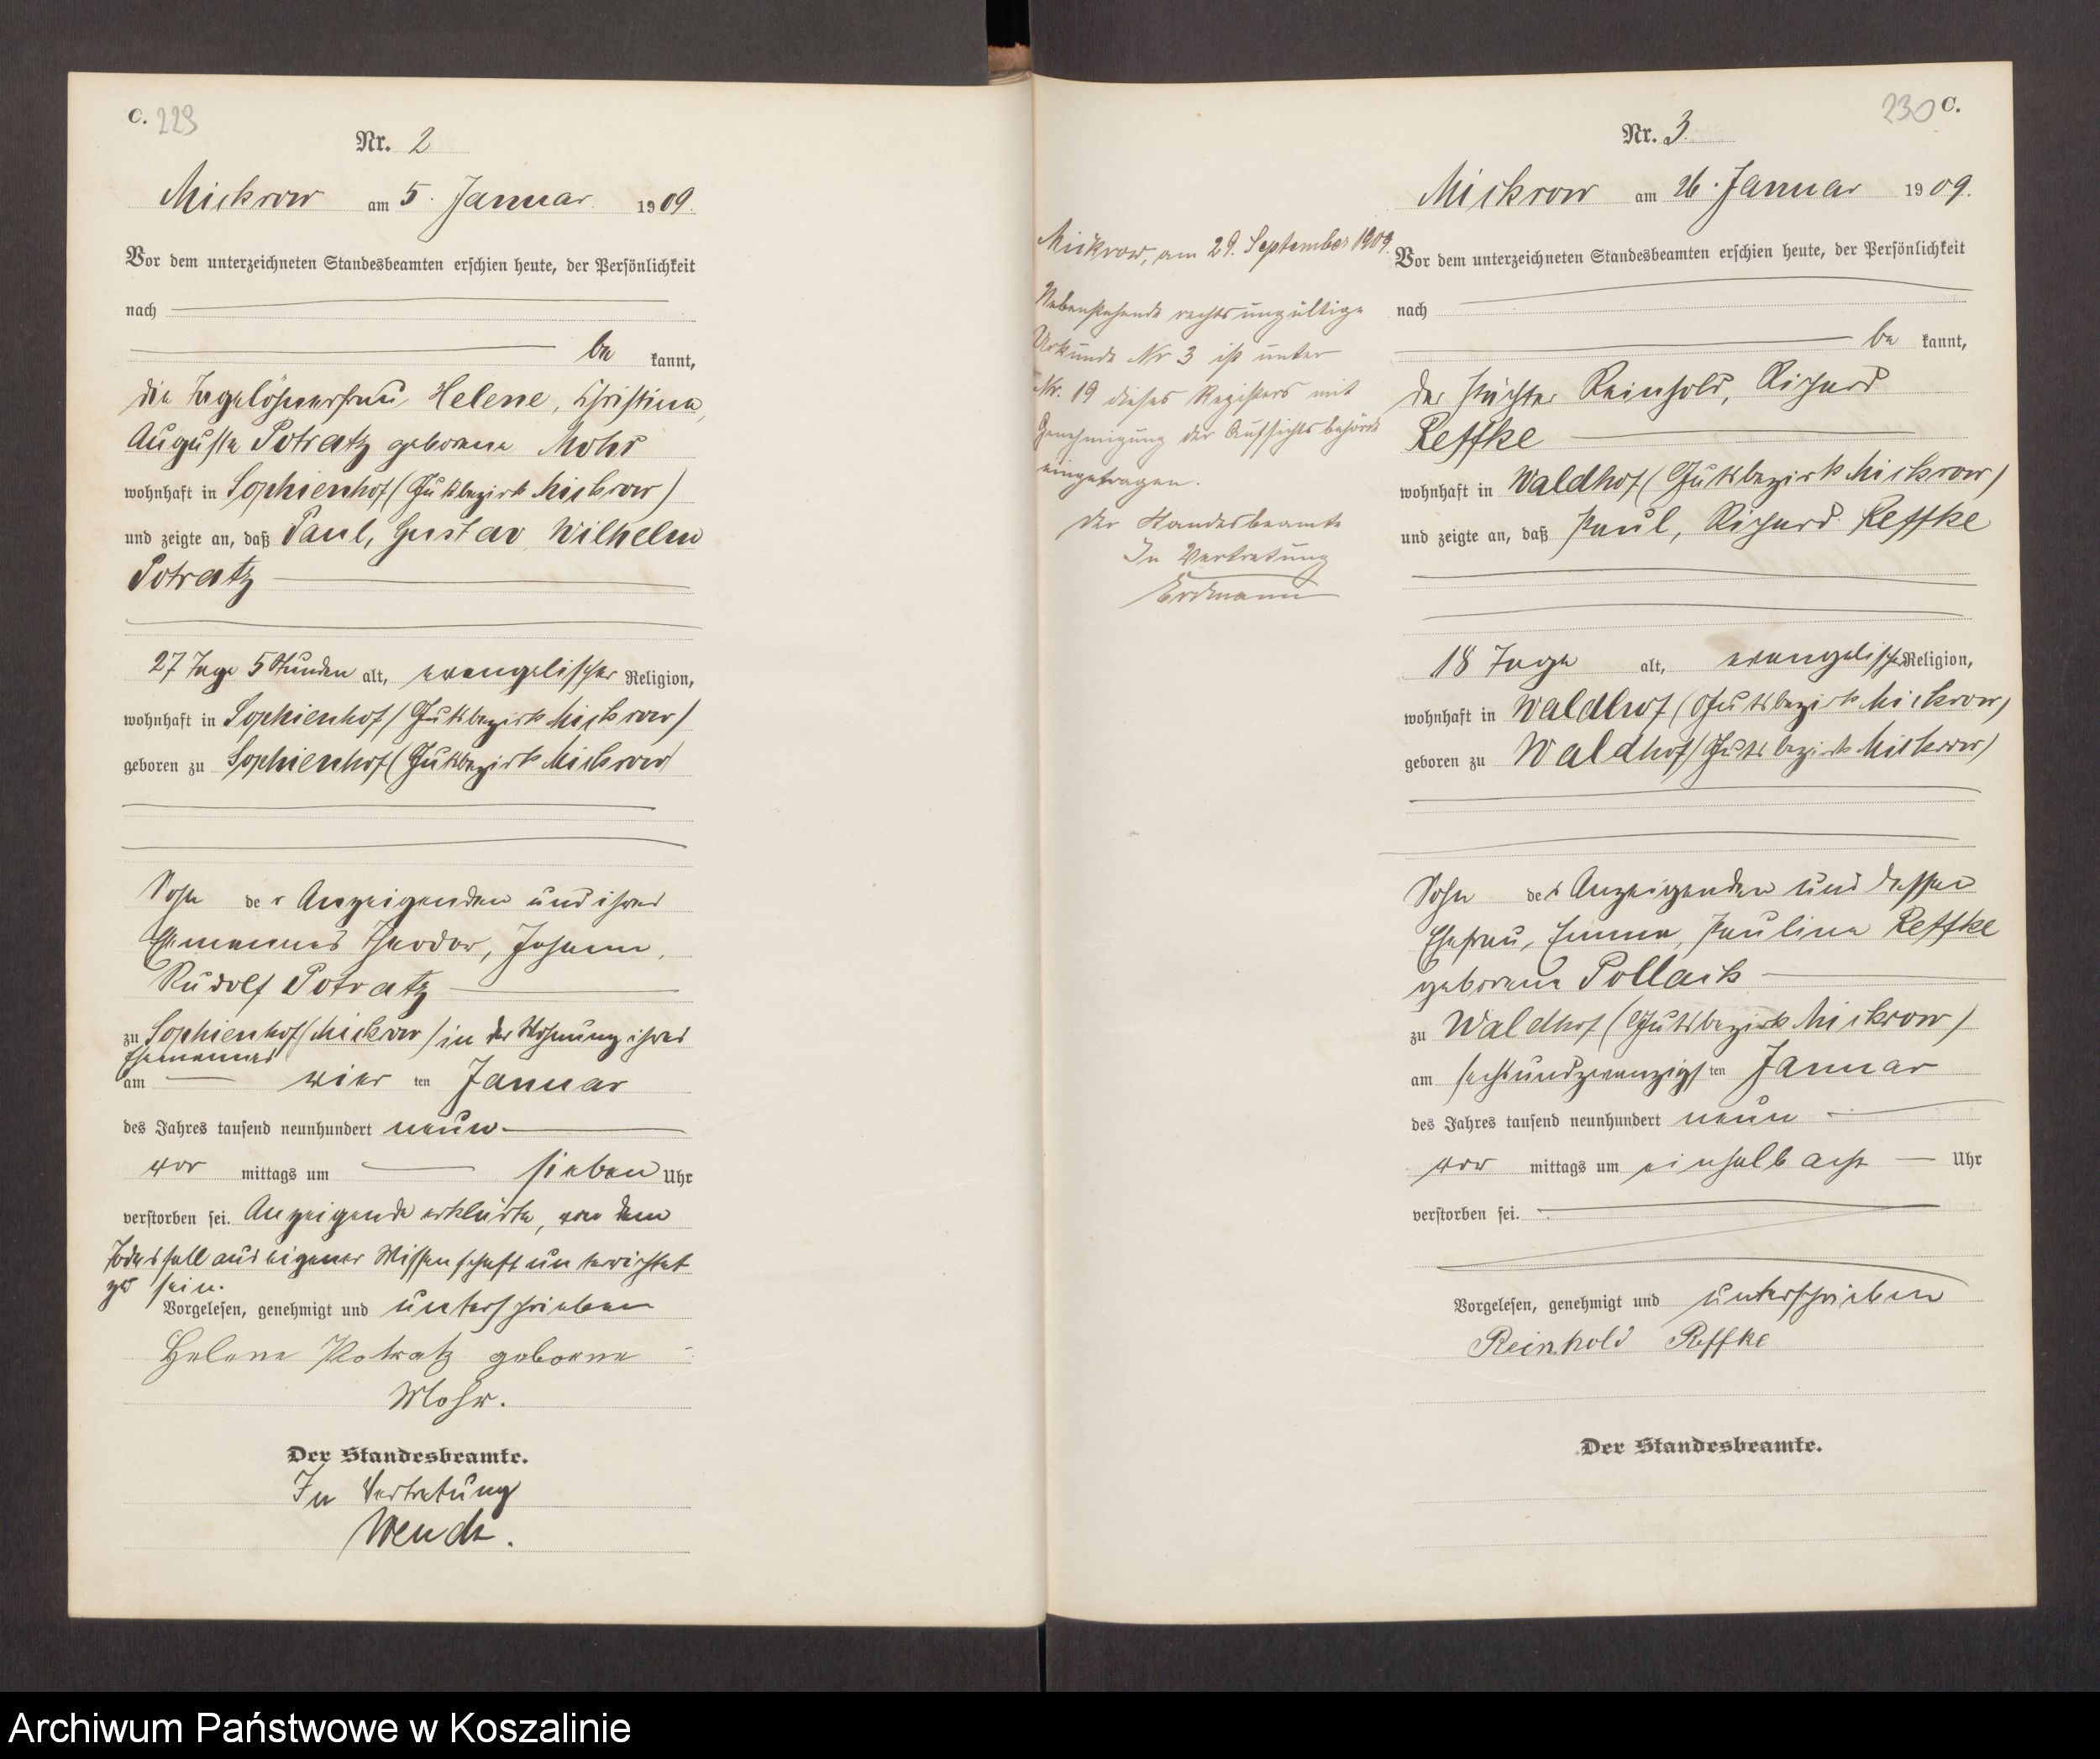 C. 229
Nr. 2
Mickrow am 5. Januar 1909.
Vor dem unterzeichneten Standesbeamten erschien heute, der Persönlichkeit
nach
be kannt,
die Tagelöhnerfrau Helene, Christine,
Auguste Potratz geborene Mohr
wohnhaft in Sophienhof (Gutsbezirk Mickrow)
und zeigte an, daß Paul, Gustav Wilhelm
Potratz
27 Tage 5 Stunden alt, evangelischer Religion,
wohnhaft in Sophienhof (Gutsbezirk Mickrow)
geboren zu Sophienhof (Gutsbezirk Mickrow)
Sohn der Anzeigenden und ihres
Ehemannes Theodor, Johann,
Rudolf Potratz
zu Sophienhof (Mickrow) in der Wohnung ihres
Ehemannes
am vier ten Januar
des Jahres tausend neunhundert neun
vor mittags um sieben Uhr
verstorben sei. Anzeigende erklärte, von dem
Todesfall aus eigener Wissenschaft unterrichtet
zu sein.
Vorgelesen, genehmigt und unterschrieben
Helene Potratz geborene
Mohr.
Der Standesbeamte.
In Vertretung
Wendt.
230 C.
Nr. 3.
Mickrow am 26. Januar 1909.
Mickrow, am 29. September 1909.
Nebenstehende rechtsungültige
Urkunde Nr 3 ist unter
Nr. 19 dieses Registers mit
Genehmigung der Aufsichtsbehörde
eingetragen.
Der Standesbeamte
In Vertretung
Erdmann
Vor dem unterzeichneten Standesbeamten erschien heute, der Persönlichkeit
nach
be kannt,
der Pächter Reinhold, Richard
Reffke
wohnhaft in Waldhof (Gutsbezirk Mickrow)
und zeigte an, daß Paul, Richard Reffke
18 Tage alt, evangelischer Religion,
wohnhaft in Waldhof (Gutsbezirk Mickrow)
geboren zu Waldhof (Gutsbezirk Mickrow)
Sohn des Anzeigenden und dessen
Ehefrau, Emma, Pauline Reffke
geborene Pollack
zu Waldhof (Gutsbezirk Mickrow)
am sechsundzwanzigsten Januar
des Jahres tausend neunhundert neun
vor mittags um einhalb acht Uhr
verstorben sei.
Vorgelesen, genehmigt und unterschrieben
Reinhold Reffke
Der Standesbeamte.
Archiwum Państwowe w Koszalinie